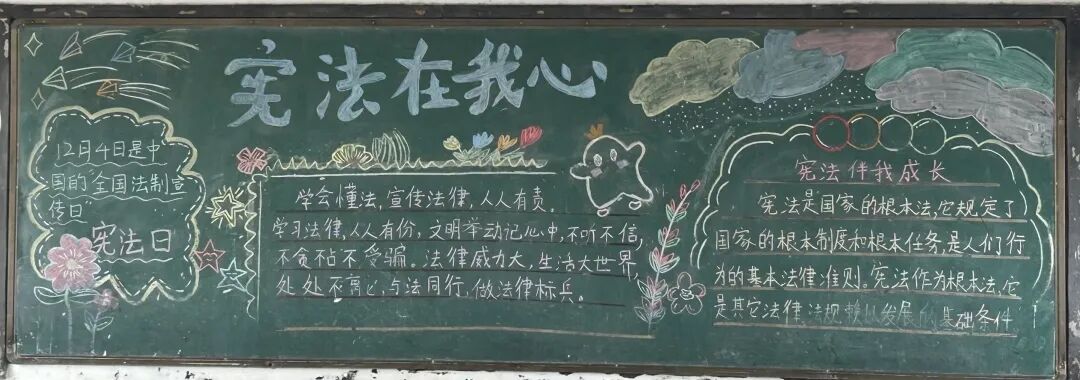 宪法在我心
12月4日是中
国的"全国法制宣
传日"
宪法日
学会懂法,宣传法律,人人有责。
学习法律,人人有份,文明举动记心中,不听不信,
不贪不占不受骗。法律威力大,生活大世界,
处处不离它,与法同行,做法律标兵。
宪法伴我成长
宪法是国家的根本法,它规定了
国家的根本制度和根本任务,是人们行
为的基本法律准则。宪法作为根本法,它
是其它法律法规 发展的基础条件